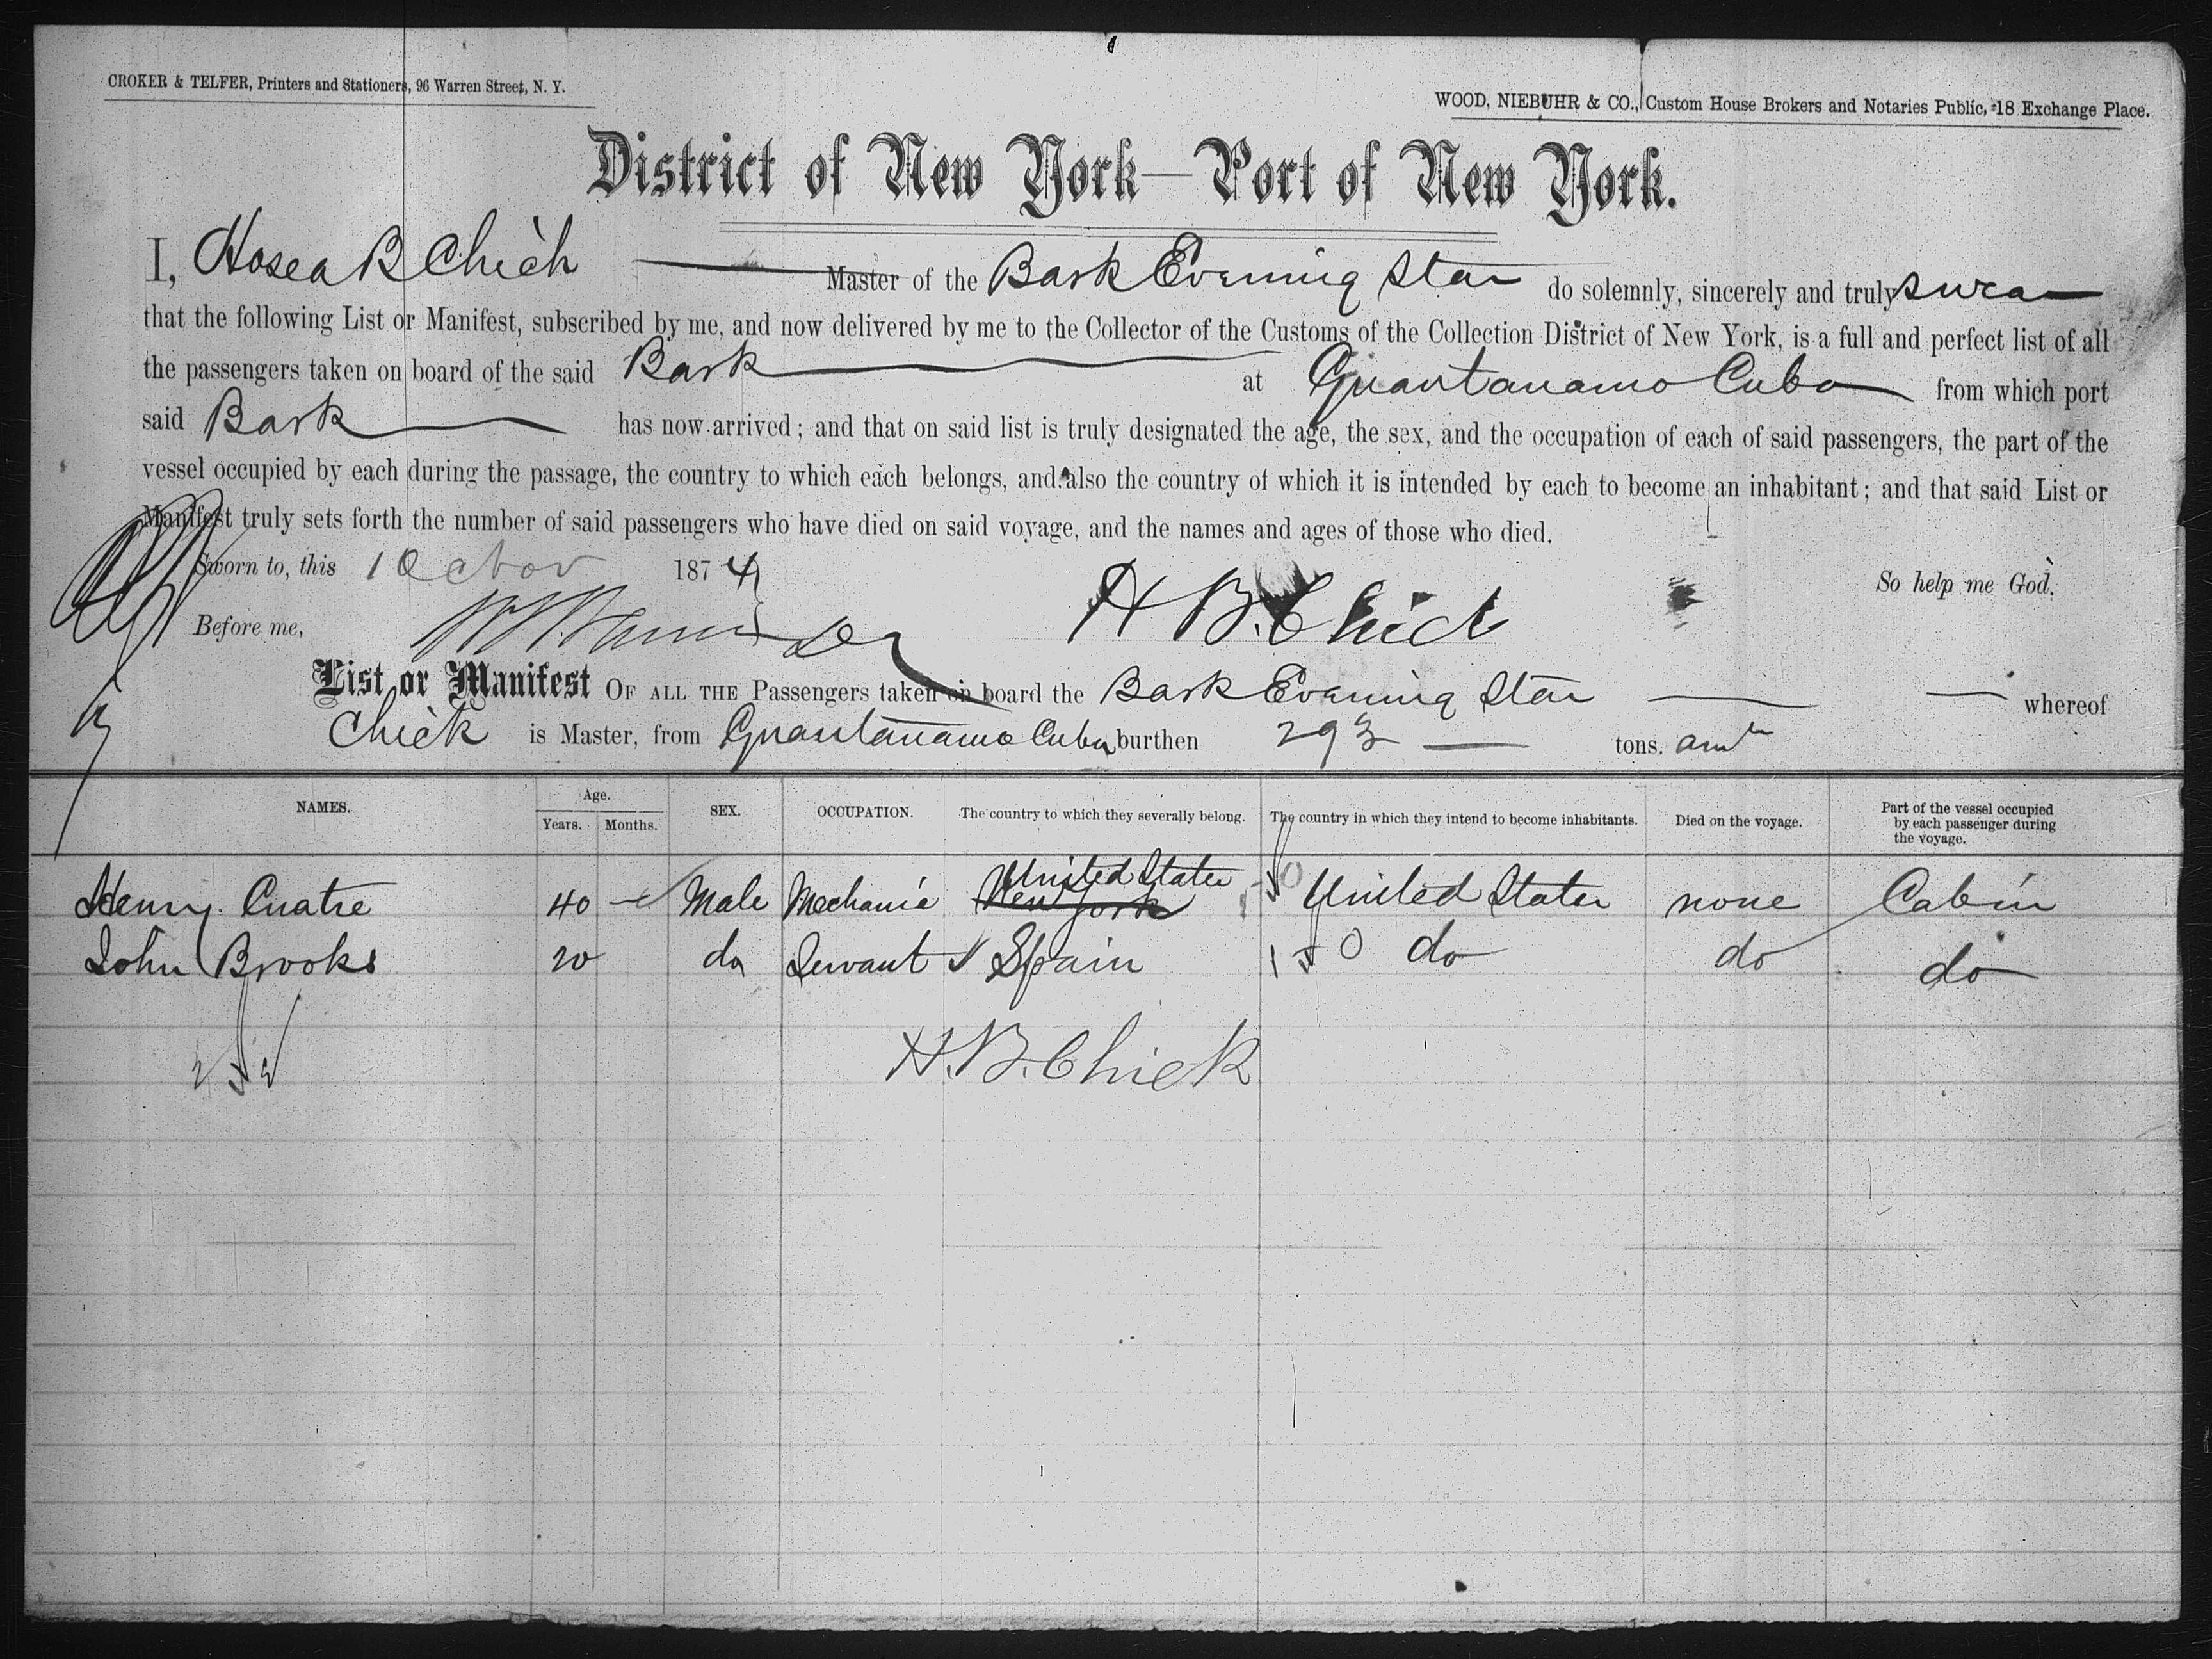 CROKER & TELFER, Printers and Stationers, 96 Warren Street, N. Y.
WOOD, NIEBUHR & CO., Custom House Brokers and Notaries Public, 18 Exchange Place.
District of New York—Port of New York.
I, Hosea B Chick Master of the Bark Evening Star do solemnly, sincerely and truly swear
that the following List or Manifest, subscribed by me, and now delivered by me to the Collector of the Customs of the Collection District of New York, is a full and perfect list of all
the passengers taken on board of the said Bark at Guantanamo Cuba from which port
said Bark has now arrived; and that on said list is truly designated the age, the sex, and the occupation of each of said passengers, the part of the
vessel occupied by each during the passage, the country to which each belongs, and also the country of which it is intended by each to become an inhabitant; and that said List or
Manifest truly sets forth the number of said passengers who have died on said voyage, and the names and ages of those who died.
Sworn to, this 1 1874 So help me God.
Before me, H B. Chick
List or Manifest OF ALL THE Passengers taken on board the Bark Evening Star whereof
Chick is Master, from Guantanamo Cuba burthen 293 tons.
NAMES. Age. Years. Months. SEX. OCCUPATION. The country to which they severally belong. The country in which they intend to become inhabitants. Died on the voyage. Part of the vessel occupied by each passenger during the voyage.
United States
Henry Cuatre 40 Male Mechanic New York United States none Cabin
John Brooks 20 do Servant Spain do do do
H. B. Chick